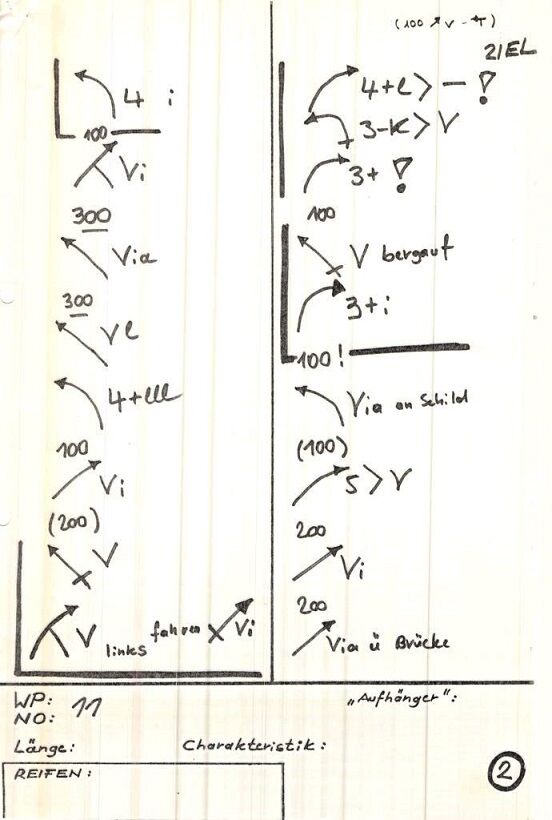 4 i
100
Vi
300
Via
300
Vl
4+lll
100
Vi
(200)
V
V links fahren Vi
(100 V - 4)
ZIEL
4+l > - !
3-K > V
3+ !
100
V bergauf
3+i
100!
Via an Schild
(100)
5 > V
200
Vi
200
Via ü Brücke
WP:
NO: 11
Länge:
Charakteristik:
"Aufhänger":
REIFEN:
2